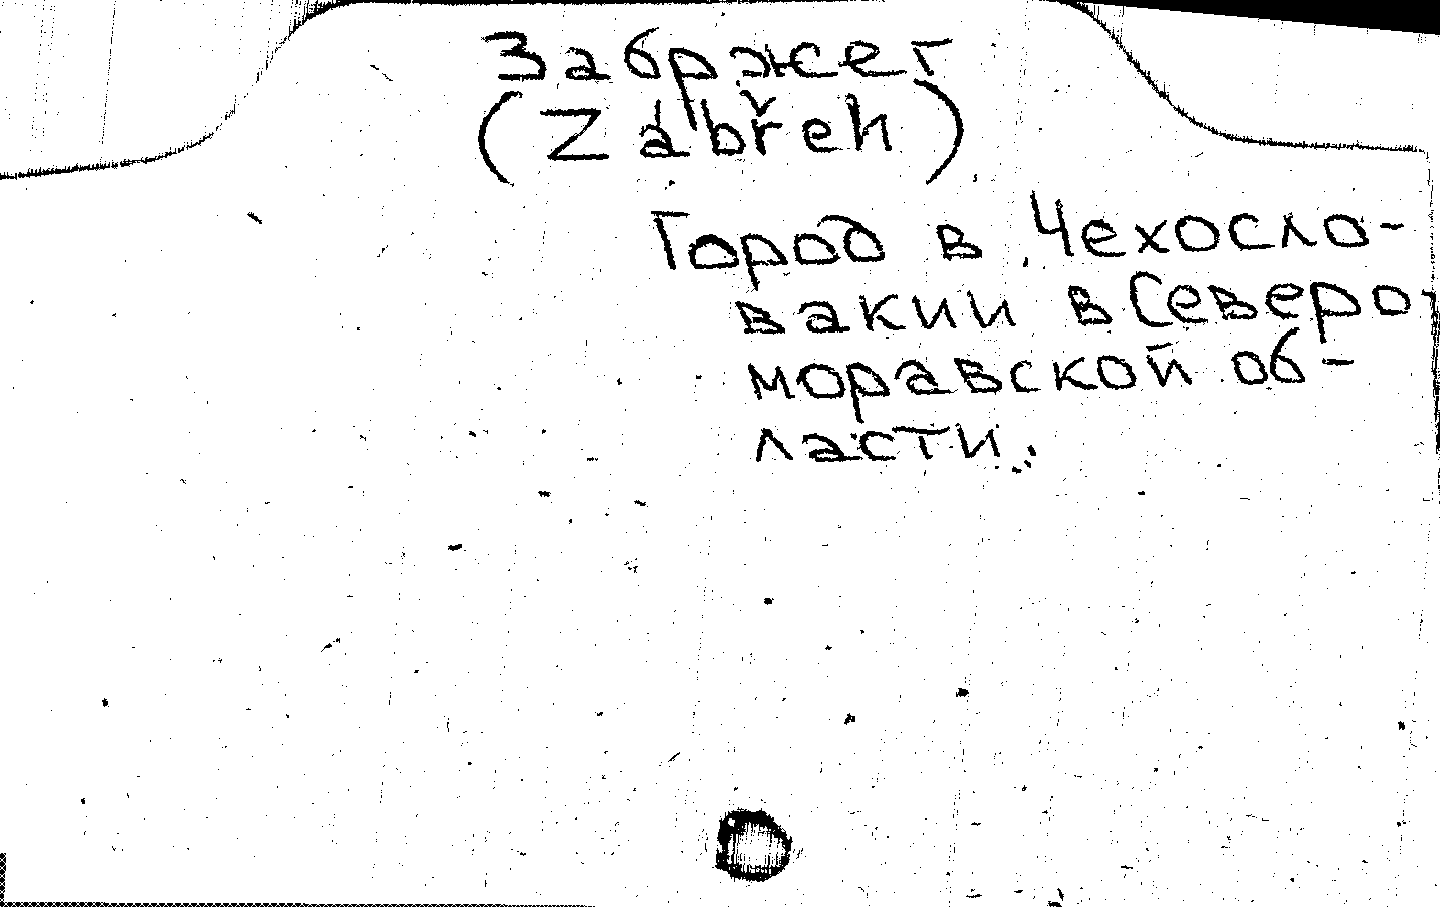 Забржег
(Zábřeh)
Город в Чехосло-
вакии в Северо-
моравской об-
ласти.